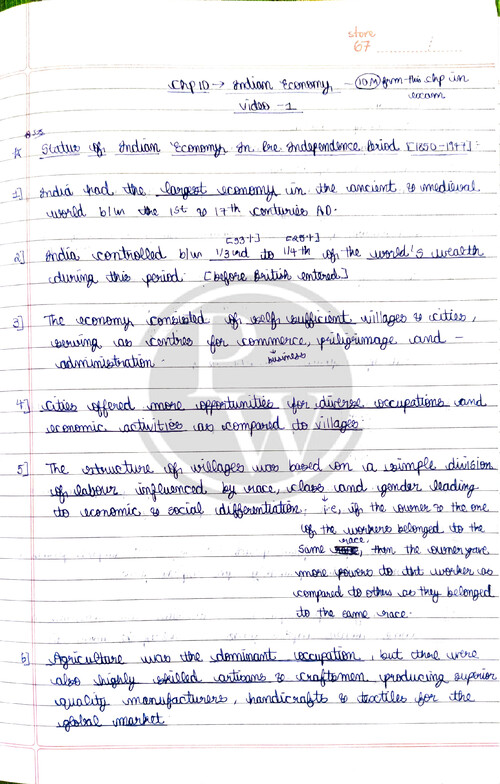 store
67
Chp 10 → Indian Economy - (10M) from this chp in
exam
Video - 1
* Status of Indian Economy In Pre Independence Period [1850-1947]:
1] India had the largest economy in the ancient & medieval
world b/w the 1st & 17th centuries AD.
[33%] [25%]
2] India controlled b/w 1/3rd to 1/4th of the world's wealth
during this period. [before British entered]
3] The economy consisted of self sufficient villages & cities,
serving as centres for commerce, priligrimage and -
administration. business
PW
4] Cities offered more opportunities for diverse occupations and
economic activities as compared to villages.
5] The structure of villages was based on a simple division
of labour influenced by race, class and gender leading
to economic & social differentiation. i.e, if the owner & the one
of the workers belonged to the
same race, than the owner gave
more powers to tht worker as
compared to others as they belonged
to the same race.
6] Agriculture was the dominant occupation, but there were
also highly skilled artisans & craftsmen producing superior
quality manufacturers, handicrafts & textiles for the
global market.